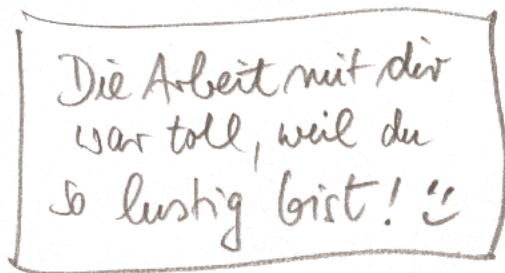 Die Arbeit mit dir
war toll, weil du
so lustig bist! ☺